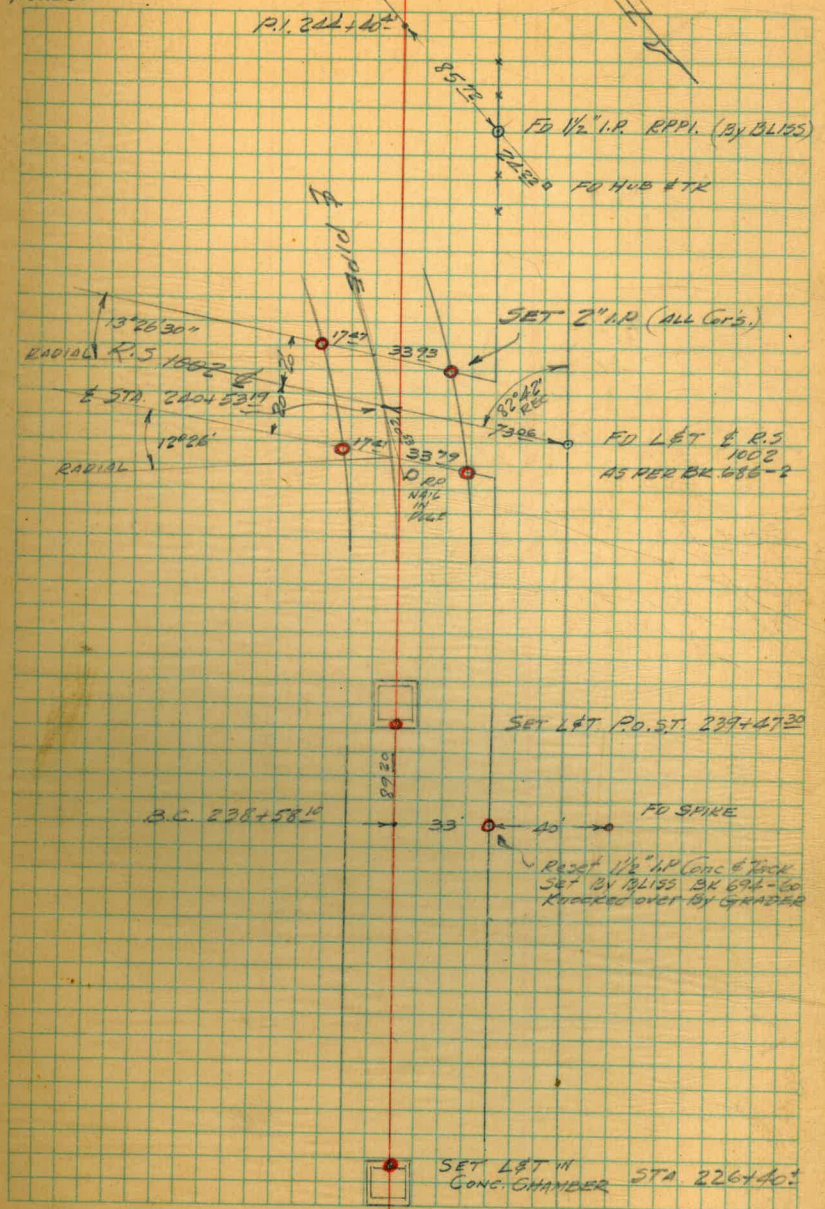 P.I. 244+40±
85.72
FD 1½" I.P. RPPI. (By BLISS)
24.22
FD HUB & TK
℄ PIPE
SET 2" I.P. (ALL Cor's.)
13°26'30"
RADIAL R.S. 1002 ℄
17.47
33.93
20 20
℄ STA. 240+53.19
82°42'
REC
73.06
FD L&T ℄ R.S
1002
AS PER BK 686-2
12°26'
RADIAL
17.41
33.79
RP
NAIL
IN
POLE
SET L&T P.O.S.T. 239+47.30
89.20
B.C. 238+58.10
33'
40'
FD SPIKE
Reset 1½" I.P. Conc & Tack
SET By BLISS BK 694-60
Knocked over By GRADER
SET L&T IN
CONC. CHAMBER STA. 226+40±